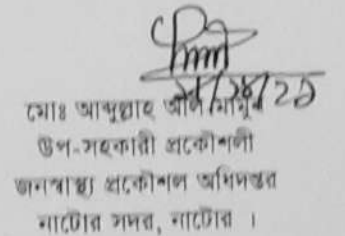 মোঃ আব্দুল্লাহ আল মামুন
উপ-সহকারী প্রকৌশলী
জনস্বাস্থ্য প্রকৌশল অধিদপ্তর
নাটোর সদর, নাটোর ।